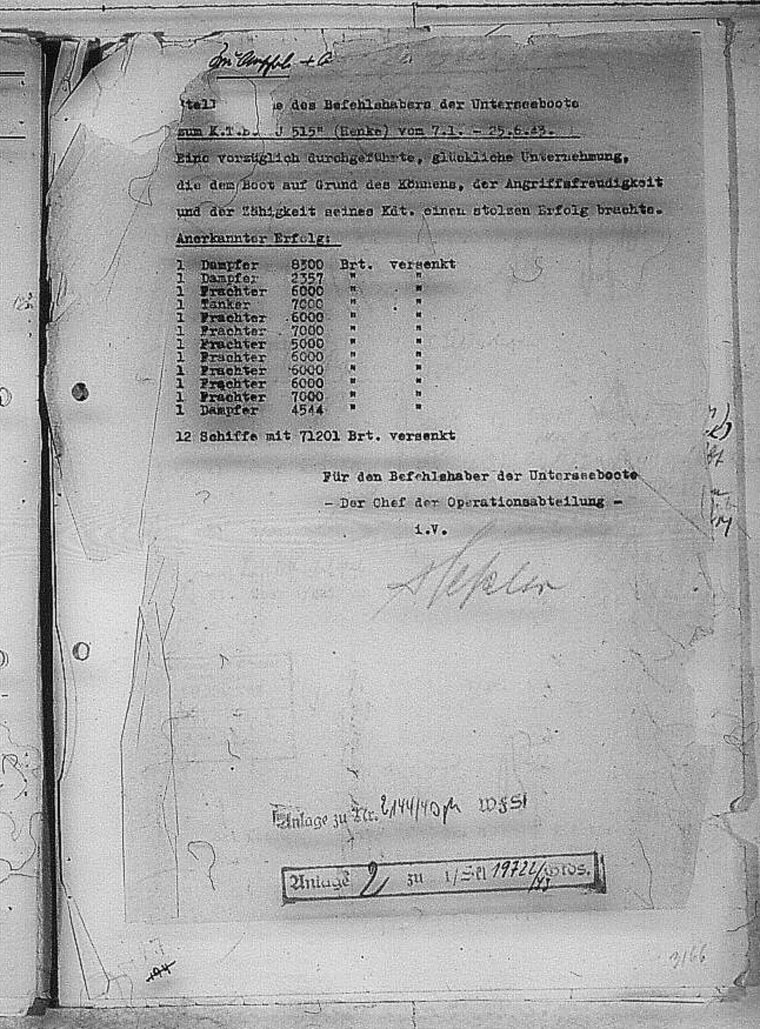 e des Befehlshabers der Unterseeboote
zum K.T.b. U 515" (Henke) vom 7.1. - 25.6.43.
Eine vorzüglich durchgeführte, glückliche Unternehmung,
die dem Boot auf Grund des Könnens, der Angriffsfreudigkeit
und der Zähigkeit seines Kdt. einen stolzen Erfolg brachte.
Anerkannter Erfolg:
1 Dampfer 8300 Brt. versenkt
1 Dampfer 2357 " "
1 Frachter 6000 " "
1 Tanker 7000 " "
1 Frachter 6000 " "
1 Frachter 7000 " "
1 Frachter 5000 " "
1 Frachter 6000 " "
1 Frachter 6000 " "
1 Frachter 6000 " "
1 Frachter 7000 " "
1 Dampfer 4544 " "
12 Schiffe mit 71201 Brt. versenkt
Für den Befehlshaber der Unterseeboote
- Der Chef der Operationsabteilung -
i.V.
Anlage zu Nr.
Anlage 2 zu 1/Skl 19722/43
3166